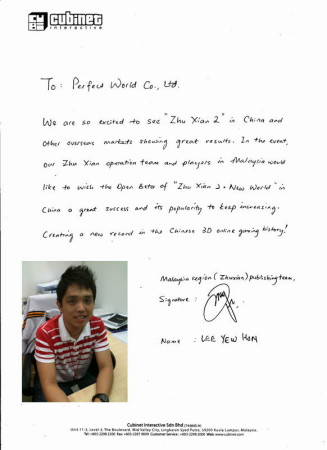 cubinet
interactive
To : Perfect World Co., Ltd.
We are so excited to see "Zhu Xian 2" in China and
other overseas markets showing great results. In the event,
our Zhu Xian operation team and players in Malaysia would
like to wish the Open Beta of "Zhu Xian 2 • New World" in
China a great success and its popularity to keep increasing.
Creating a new record in the Chinese 3D online gaming history!
Malaysia region (Zhuxian) publishing team,
Signature :
Name : LEE YEW HAM
Cubinet Interactive Sdn Bhd
Unit 11-3, Level 3, The Boulevard, Mid Valley City, Lingkaran Syed Putra, 59200 Kuala Lumpur, Malaysia.
Tel: +603 2298 2000 Fax: +603 2287 Customer Service: +603 2298 2000 Web: www.cubinet.com